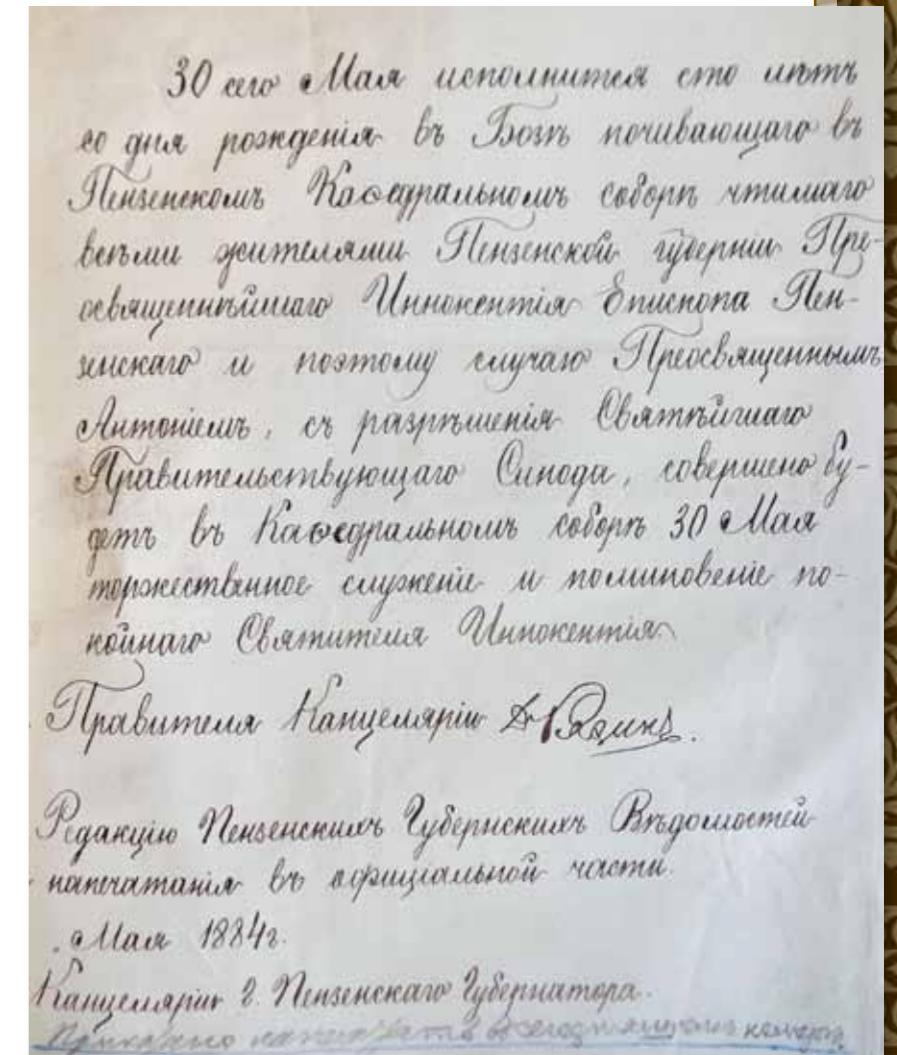 30 сего Мая исполнится сто лѣтъ
со дня рожденія въ Бозѣ почивающаго въ
Пензенскомъ Каѳедральномъ соборѣ чтимаго
всѣми жителями Пензенской губерніи Пре-
освященнѣйшаго Иннокентія Епископа Пен-
зенскаго и поэтому случаю Преосвященнымъ
Антоніемъ, съ разрѣшенія Святѣйшаго
Правительствующаго Синода, совершено бу-
детъ въ Каѳедральномъ соборѣ 30 Мая
торжественное служеніе и поминовеніе по-
койнаго Святителя Иннокентія
Правителя Канцеляріи
Редакцію Пензенскихъ Губернскихъ Вѣдомостей
напечатанія въ офиціальной части.
Мая 1884г.
Канцелярія г. Пензенскаго Губернатора.